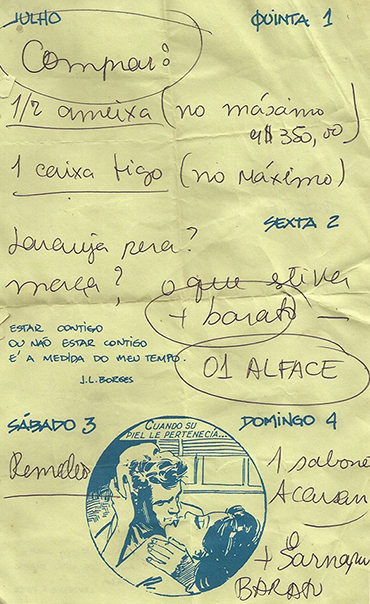 JULHO QUINTA 1
Comprar:
1/2 ameixa (no máximo
350,00)
1 caixa figo (no máximo)
SEXTA 2
Laranja pera?
maçã? o que estiver
+ barato —
ESTAR CONTIGO
OU NÃO ESTAR CONTIGO
E' A MEDIDA DO MEU TEMPO.
J.L. BORGES
01 ALFACE
SÁBADO 3 DOMINGO 4
CUANDO SU
PIEL LE PERTENECÍA...
1 sabone
+
BARATO